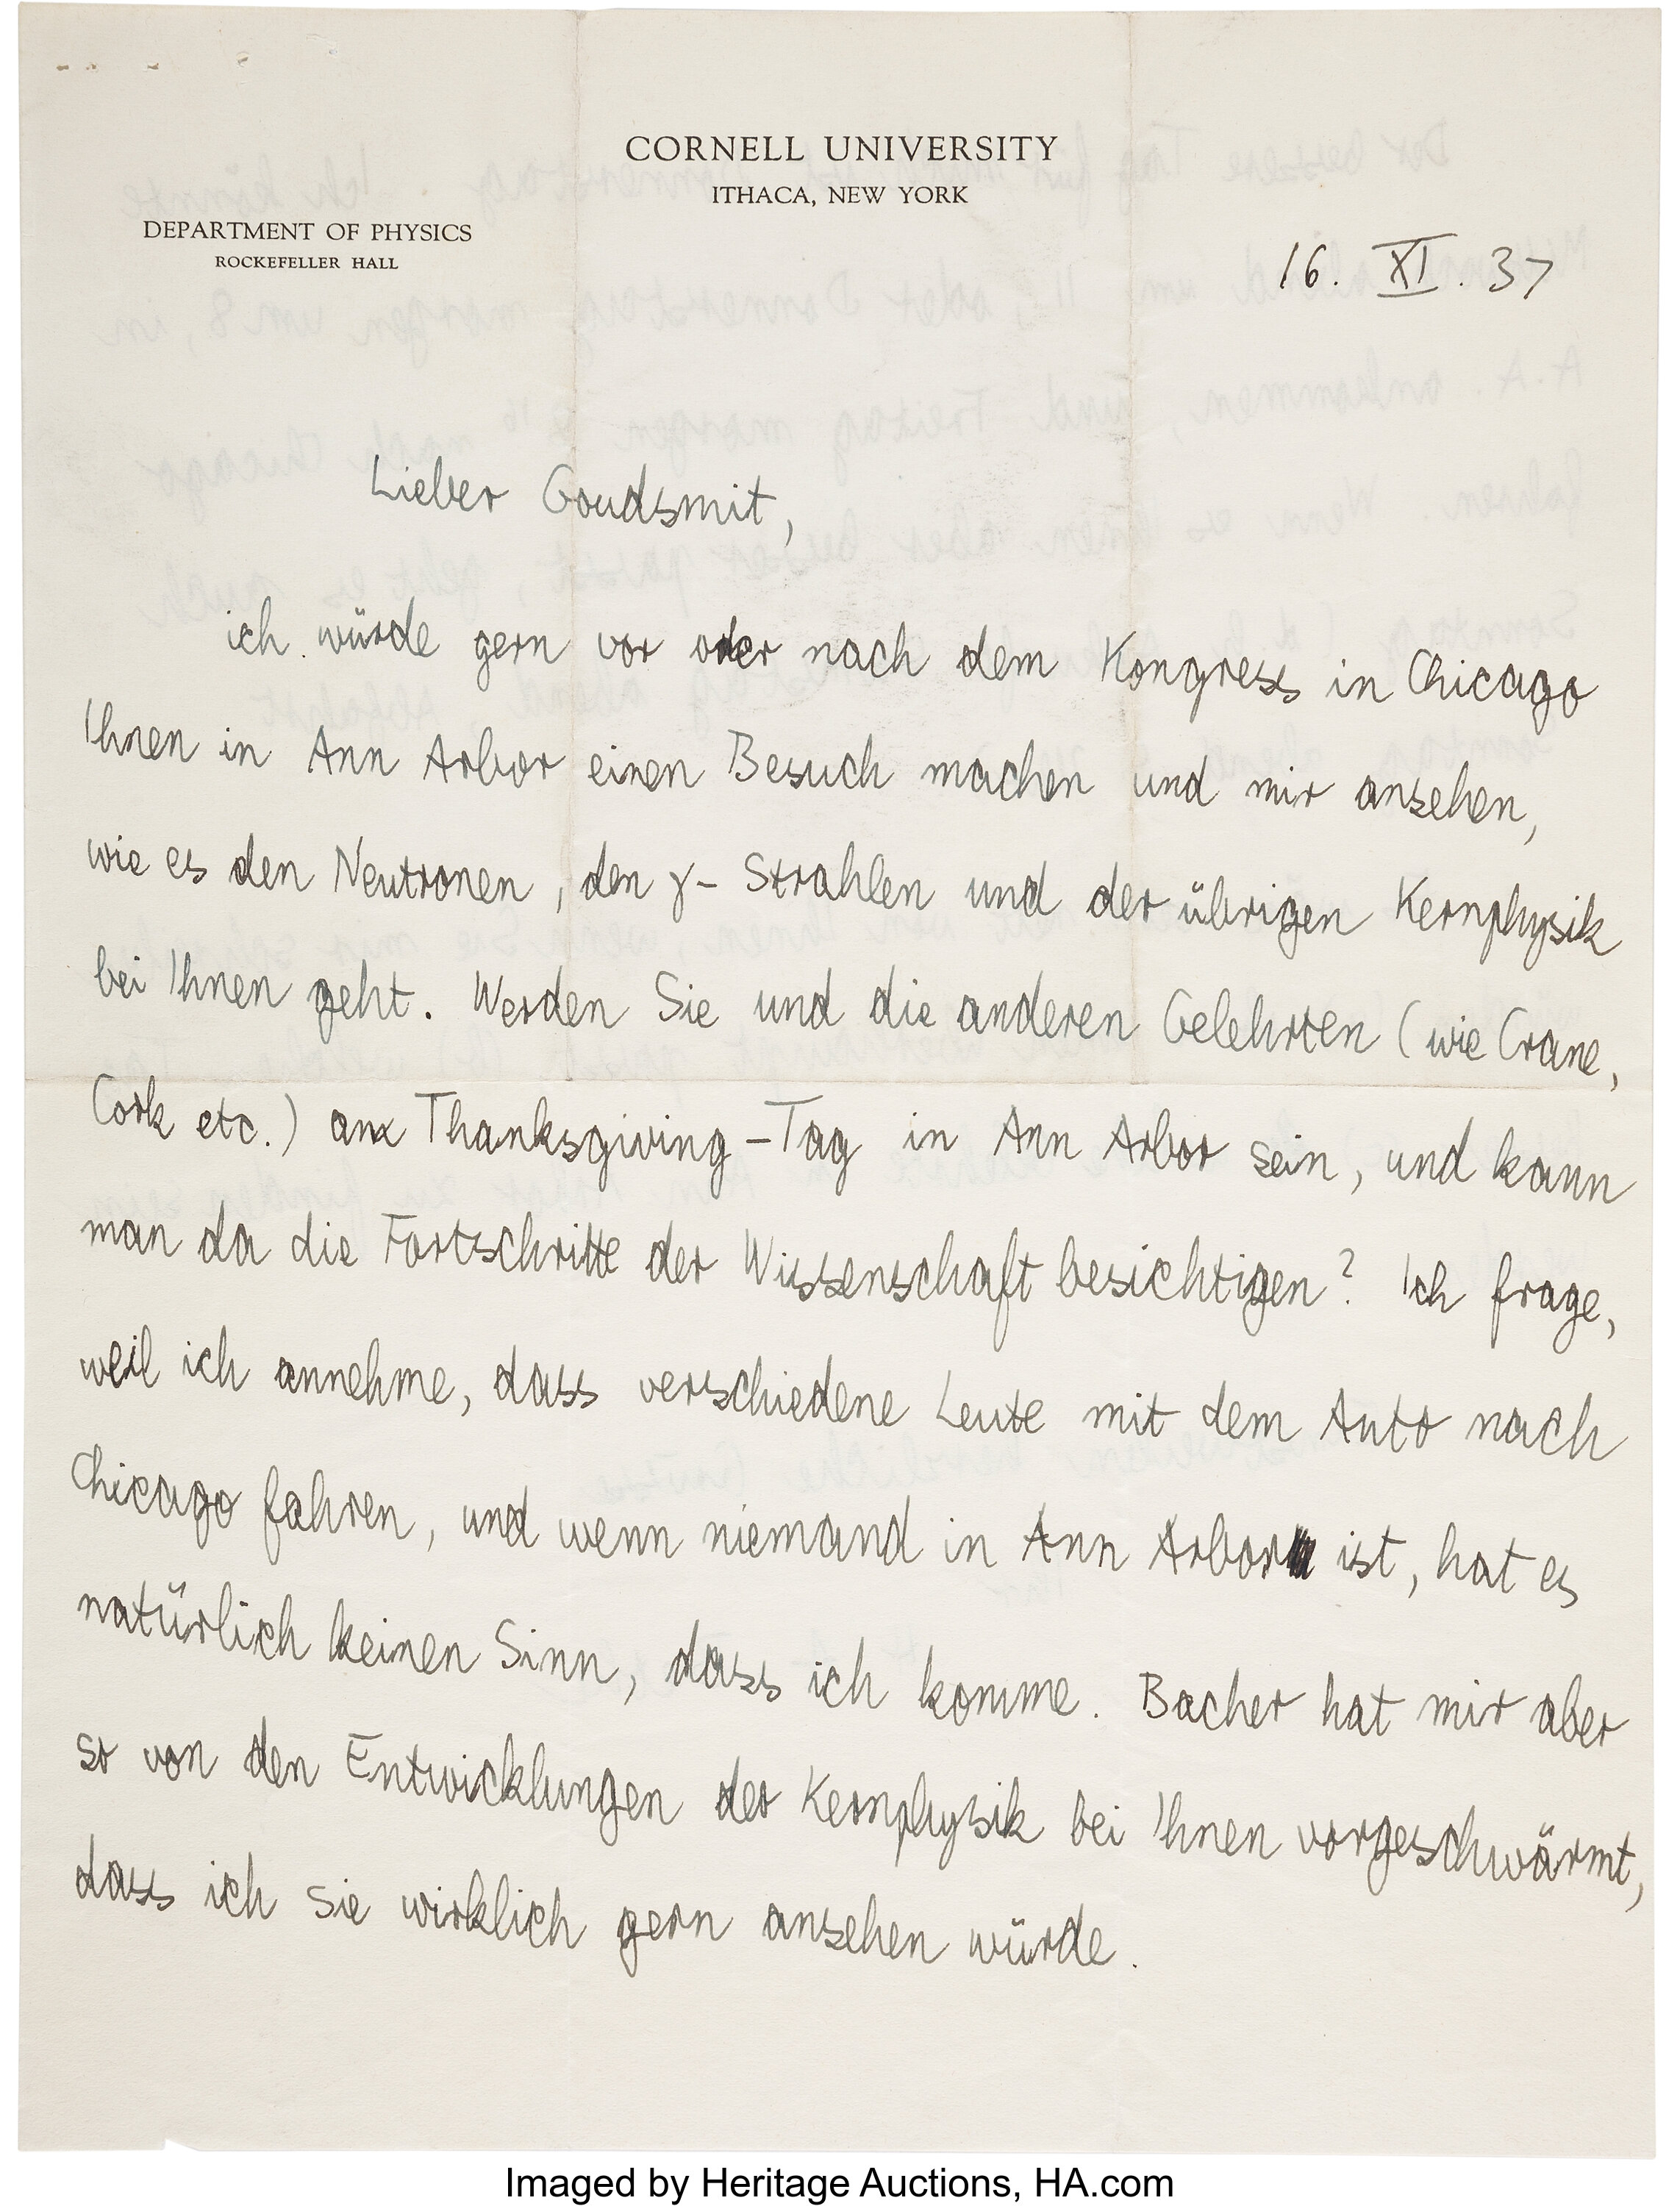 CORNELL UNIVERSITY
ITHACA, NEW YORK
DEPARTMENT OF PHYSICS
ROCKEFELLER HALL
16. XI. 37
Lieber Goudsmit,
ich würde gern vor oder nach dem Kongress in Chicago
Ihnen in Ann Arbor einen Besuch machen und mir ansehen,
wie es den Neutronen, den γ-Strahlen und der übrigen Kernphysik
bei Ihnen geht. Werden Sie und die anderen Gelehrten (wie Crane,
Cork etc.) am Thanksgiving-Tag in Ann Arbor sein, und kann
man da die Fortschritte der Wissenschaft besichtigen? Ich frage,
weil ich annehme, dass verschiedene Leute mit dem Auto nach
Chicago fahren, und wenn niemand in Ann Arbor ist, hat es
natürlich keinen Sinn, dass ich komme. Bacher hat mir aber
so von den Entwicklungen der Kernphysik bei Ihnen vorgeschwärmt,
dass ich sie wirklich gern ansehen würde.
Imaged by Heritage Auctions, HA.com